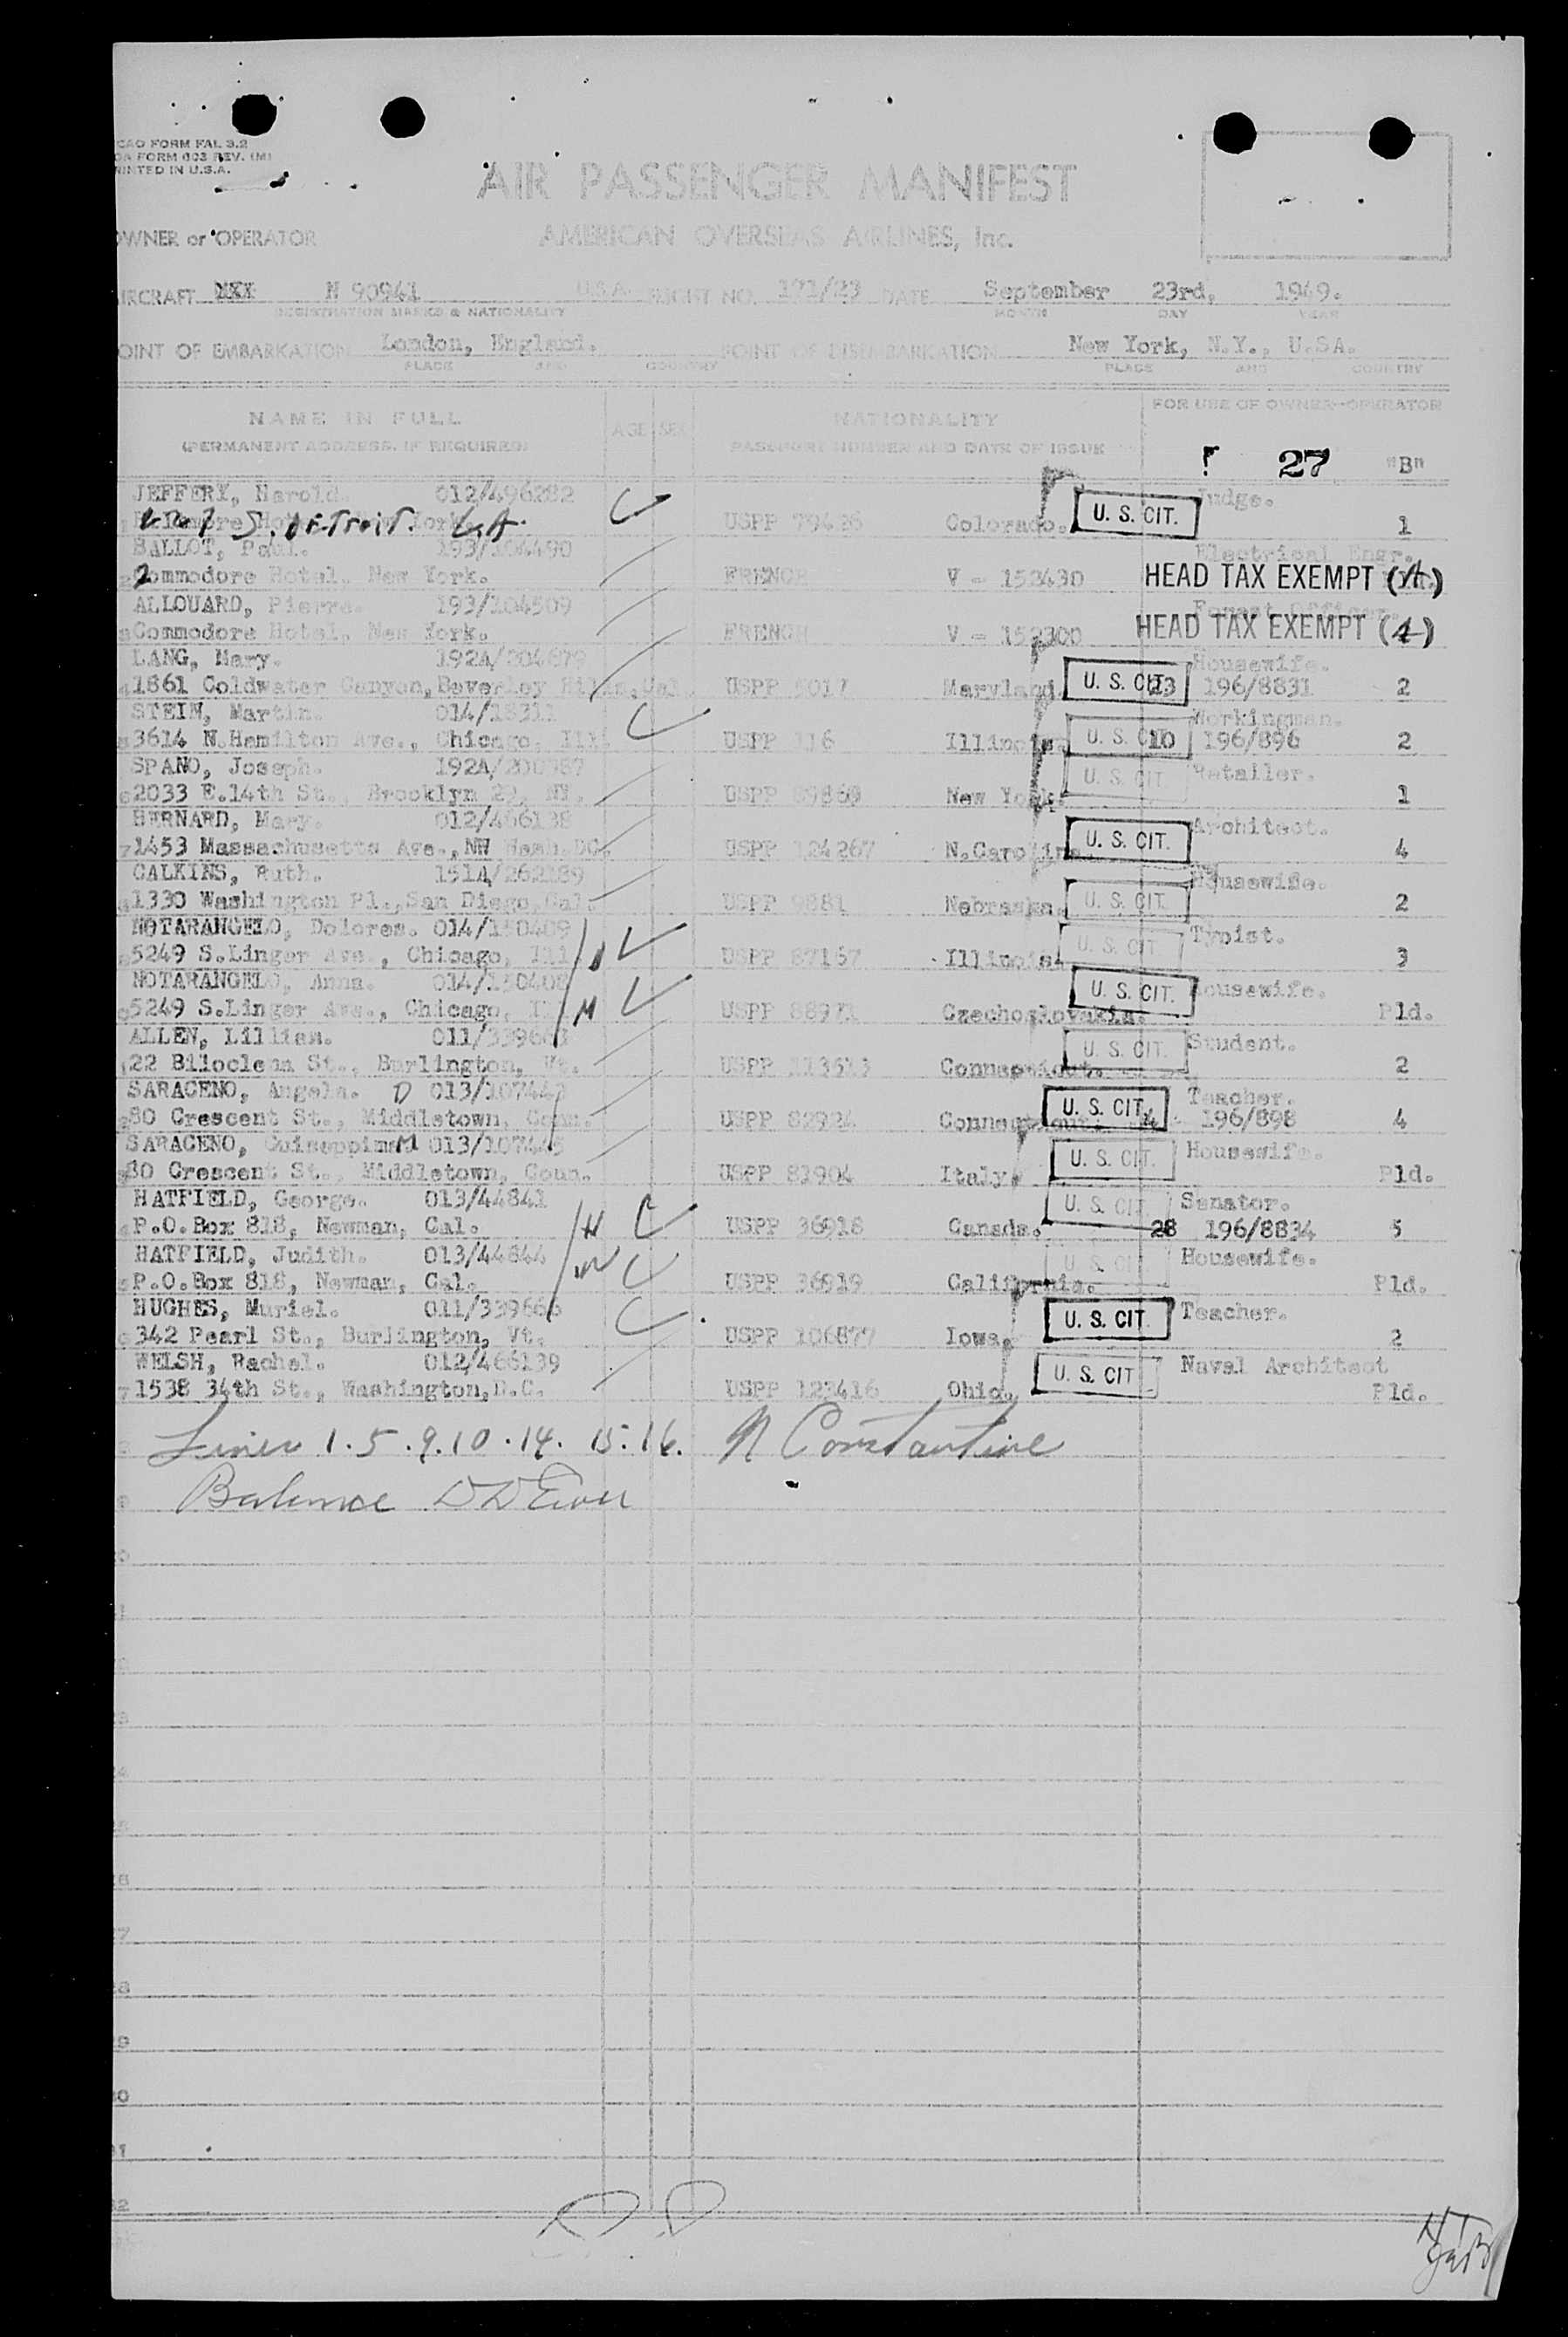 CAO FORM FAL 3.2
OA FORM 603 REV. (M)
RINTED IN U.S.A.
AIR PASSENGER MANIFEST
OWNER or OPERATOR AMERICAN OVERSEAS AIRLINES, Inc.
IRCRAFT NXX N 90941 U.S.A. FLIGHT NO. 171/23 DATE September 23rd, 1949.
REGISTRATION MARKS & NATIONALITY MONTH DAY YEAR
OINT OF EMBARKATION London, England. POINT OF DISEMBARKATION New York, N.Y., U.SA.
PLACE AND COUNTRY PLACE AND COUNTRY
NAME IN FULL AGE SEX NATIONALITY FOR USE OF OWNER-OPERATOR
(PERMANENT ADDRESS, IF REQUIRED) PASSPORT NUMBER AND DATE OF ISSUE
27 "B"
JEFFERY, Harold. 012/496282 Judge.
S. Detroit. L.A. USPP 79426 Colorado. U. S. CIT. 1
BALLOT, Paul. 193/104490 Electrical Engr.
2 Commodore Hotel. New York. FRENCH V - 152430 HEAD TAX EXEMPT (A)
ALLOUARD, Pierre. 193/104509 Forest Officer
3 Commodore Hotel, New York. FRENCH V - 152300 HEAD TAX EXEMPT (A)
LANG, Mary. 192A/204679 Housewife.
4 1861 Coldwater Canyon, Beverley Hills, Cal. USPP 5017 Maryland. U. S. CIT. 23 196/8831 2
STEIN, Martin. 014/18311 Workingman.
5 3614 N.Hamilton Ave., Chicago, Ill. USPP 116 Illinois. U. S. CIT. 10 196/896 2
SPANO, Joseph. 192A/200387 U. S. CIT. Retailer.
6 2033 E.14th St., Brooklyn 29, NY. USPP 89869 New York. 1
BERNARD, Mary. 012/466138 Architect.
7 1453 Massachusetts Ave., NW Wash.DC. USPP 124267 N.Carolina. U. S. CIT. 4
CALKINS, Ruth. 151A/262189 Housewife.
8 1330 Washington Pl., San Diego, Cal. USPP 9881 Nebraska. U. S. CIT. 2
NOTARANGELO, Dolores. 014/150409 Typist.
9 5249 S.Linger Ave., Chicago, Ill. D USPP 87167 Illinois. U. S. CIT. 3
NOTARANGELO, Anna. 014/150408 U. S. CIT. Housewife.
0 5249 S.Linger Ave., Chicago, Ill. M USPP 88971 Czechoslovakia. Pld.
ALLEN, Lillian. 011/339663 U. S. CIT. Student.
1 22 St., Burlington, Vt. USPP 113613 Connecticut. 2
SARACENO, Angela. D 013/107442 Teacher.
2 80 Crescent St., Middletown, Conn. USPP 82924 Connecticut. U. S. CIT. 4 196/898 4
SARACENO, Guiseppina M 013/107445 Housewife.
3 80 Crescent St., Middletown, Conn. USPP 81904 Italy. U. S. CIT. Pld.
HATFIELD, George. 013/44841 U. S. CIT. Senator.
4 P.O.Box 818, Newman, Cal. H USPP 36918 Canada. 28 196/8834 5
HATFIELD, Judith. 013/44844 W U. S. CIT. Housewife.
5 P.O.Box 818, Newman, Cal. USPP 36919 California. Pld.
HUGHES, Muriel. 011/339666 U. S. CIT. Teacher.
6 342 Pearl St., Burlington, Vt. USPP 106877 Iowa. 2
WELSH, Rachel. 012/466139 U. S. CIT. Naval Architect
7 1538 34th St., Washington, D.C. USPP 123416 Ohio. Pld.
Lines 1. 5. 9. 10. 14. 15. 16. N Constantine
Balance